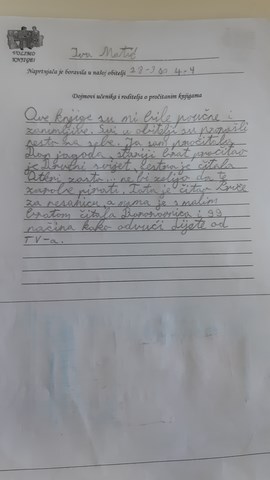 VOLIMO
KNJIGE!
Iva Matić
Naprtnjača je boravila u našoj obitelji 28-3 do 4.4
Dojmovi učenika i roditelja o pročitanim knjigama
Ove knjige su mi bile poučne i
zanimljive. Svi u obitelji su pronašli
nešto za sebe. Ja sam pročitala
Dan jagoda, stariji brat pročitao
je Dnevni svijet, sestra je čitala
Otkrij zašto... ne bi volio da te
zarobe pirati. Tata je čitao Zrike
za nesanicu a mama je s malim
bratom čitala Čarobnica i 99
načina kako odvući dijete od
TV-a.